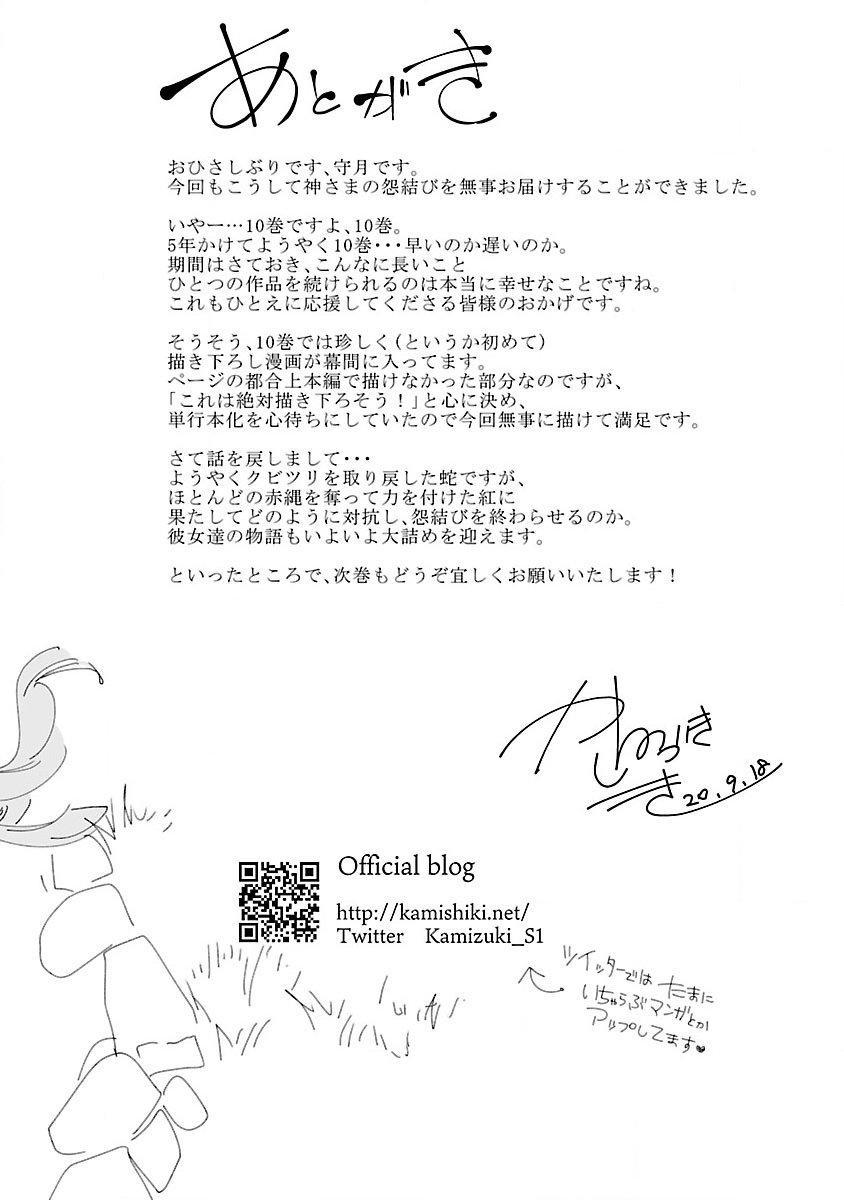 あとがき
おひさしぶりです、守月です。
今回もこうして神さまの怨結びを無事お届けすることができました。
いやー…10巻ですよ、10巻。
5年かけてようやく10巻･･･早いのか遅いのか。
期間はさておき、こんなに長いこと
ひとつの作品を続けられるのは本当に幸せなことですね。
これもひとえに応援してくださる皆様のおかげです。
そうそう、10巻では珍しく（というか初めて）
描き下ろし漫画が幕間に入ってます。
ページの都合上本編で描けなかった部分なのですが、
「これは絶対描き下ろそう！」と心に決め、
単行本化を心待ちにしていたので今回無事に描けて満足です。
さて話を戻しまして･･･
ようやくクビツリを取り戻した蛇ですが、
ほとんどの赤縄を奪って力を付けた紅に
果たしてどのように対抗し、怨結びを終わらせるのか。
彼女達の物語もいよいよ大詰めを迎えます。
といったところで、次巻もどうぞ宜しくお願いいたします！
20.9.18
Official blog
http://kamishiki.net/
Twitter Kamizuki_S1
ツイッターでは たまに
いちゃらぶマンガとか
アップしてます♥